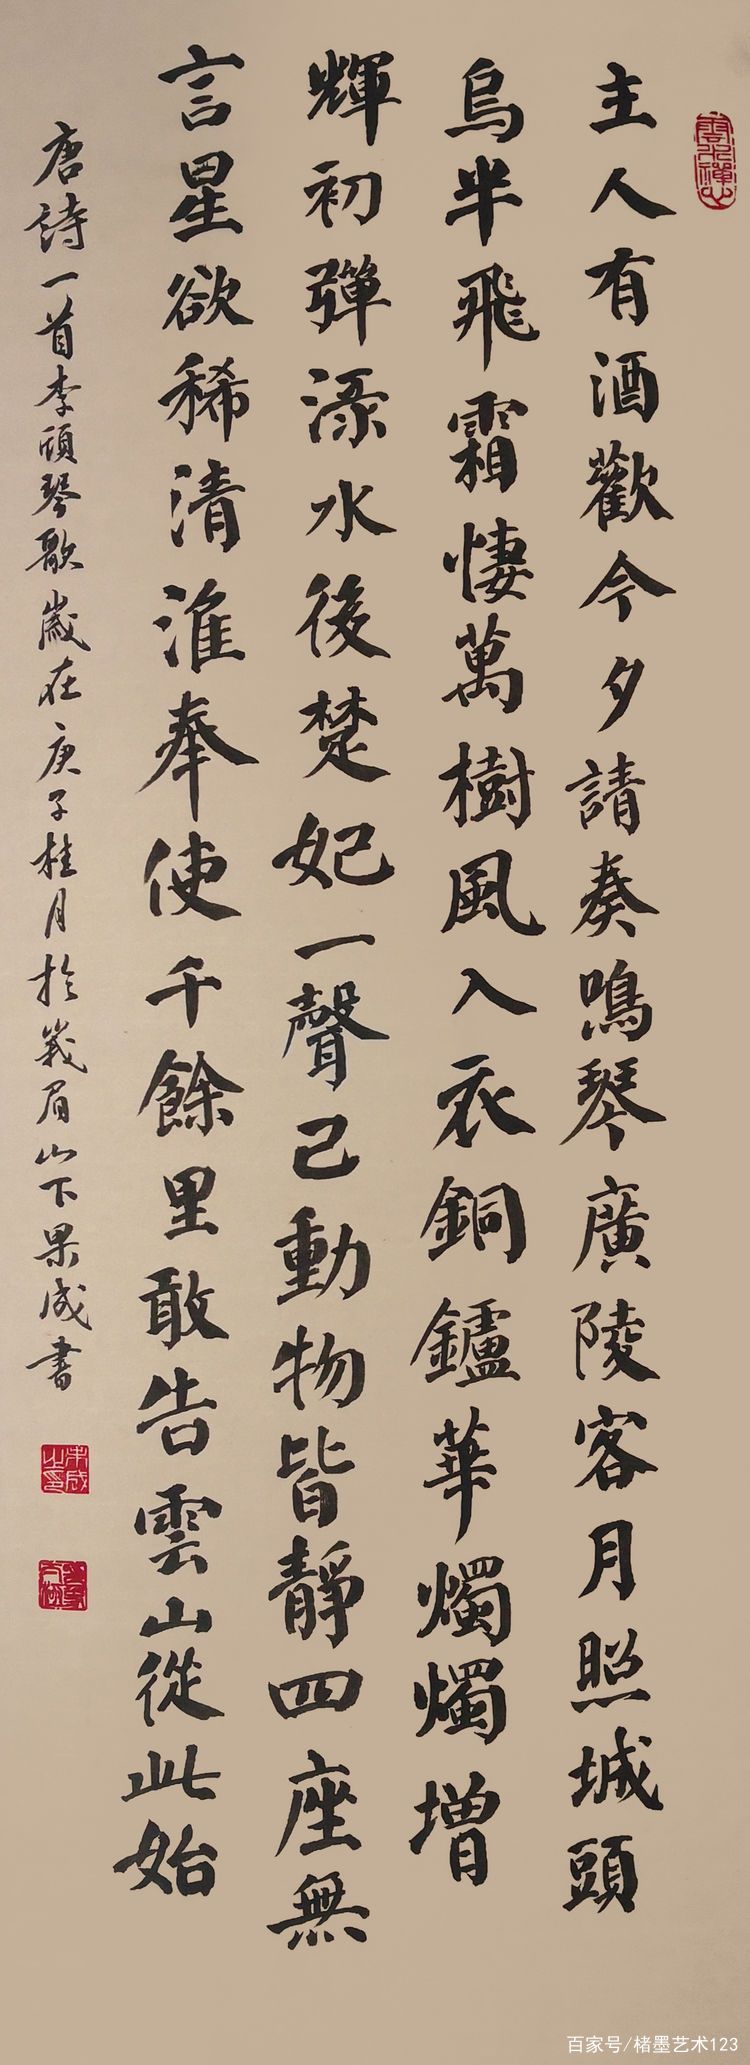 主人有酒歡今夕請奏鳴琴廣陵客月照城頭
烏半飛霜悽萬樹風入衣銅鑪華燭燭增
輝初彈淥水後楚妃一聲已動物皆靜四座無
言星欲稀清淮奉使千餘里敢告雲山從此始
唐詩一首李頎琴歌歲在庚子桂月於峩眉山下果成書
百家号/楮墨艺术123